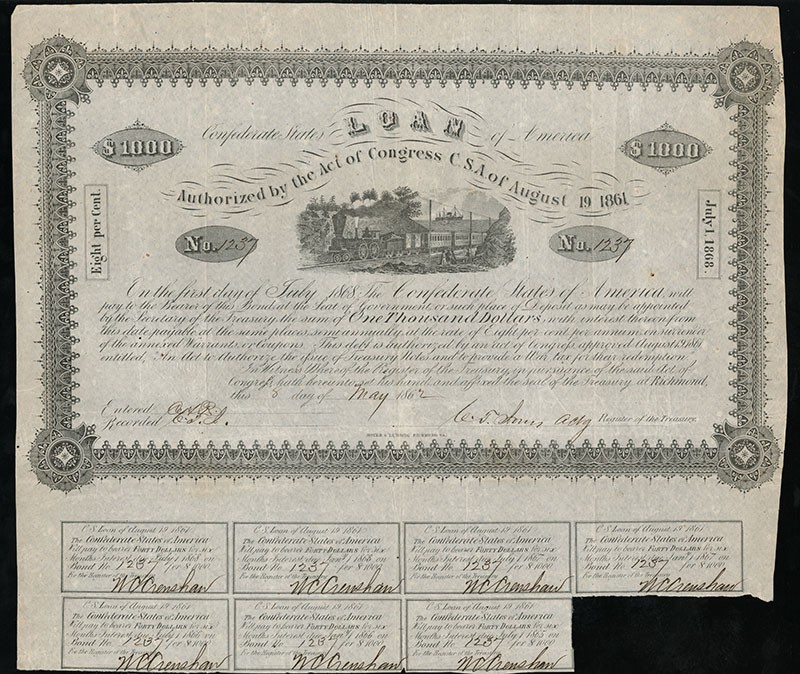 Confederate States LOAN of America
$1000 $1000
Authorized by the Act of Congress C.S.A. of August 19 1861.
Eight per Cent.
July 1. 1868.
No. 1237 No. 1237
On the first day of July 1868 The Confederate States of America, will
pay to the Bearer of this Bond, at the seat of Government, or such place of Deposit as may be appointed
by the Secretary of the Treasury, the sum of One Thousand Dollars, with interest thereon from
this date, payable at the same places, semi-annually, at the rate of Eight per cent per annum on surrender
of the annexed Warrants or Coupons. This debt is authorized by an act of Congress, approved August 19 1861,
entitled, "An Act to Authorize the issue of Treasury Notes and to provide a War tax for their redemption"
In Witness Whereof the Register of the Treasury, in pursuance of the said Act of
Congress, hath hereunto set his hand and affixed the seal of the Treasury, at Richmond,
this 5 day of May 1862
Entered
Recorded
Register of the Treasury
HOYER & LUDWIG, RICHMOND, VA.
C.S. Loan of August 19 1861
The Confederate States of America
Will pay to bearer FORTY DOLLARS for six
Months Interest due July 1 1868 on
Bond No. 1237 for $1000
For the Register of the
WCCrenshaw
C.S. Loan of August 19 1861
The Confederate States of America
Will pay to bearer FORTY DOLLARS for six
Months Interest due Jany 1 1868 on
Bond No. 1237 for $1000
For the Register of the
WCCrenshaw
C.S. Loan of August 19 1861
The Confederate States of America
Will pay to bearer FORTY DOLLARS for six
Months Interest due July 1 1867 on
Bond No. 1237 for $1000
For the Register of the
WCCrenshaw
C.S. Loan of August 19 1861
The Confederate States of America
Will pay to bearer FORTY DOLLARS for six
Months Interest due Jany 1 1867 on
Bond No. 1237 for $1000
For the Register of the
WCCrenshaw
C.S. Loan of August 19 1861
The Confederate States of America
Will pay to bearer FORTY DOLLARS for six
Months Interest due July 1 1866 on
Bond No. 1237 for $1000
For the Register of the
WCCrenshaw
C.S. Loan of August 19 1861
The Confederate States of America
Will pay to bearer FORTY DOLLARS for six
Months Interest due Jany 1 1866 on
Bond No. 1237 for $1000
For the Register of the
WCCrenshaw
C.S. Loan of August 19 1861
The Confederate States of America
Will pay to bearer FORTY DOLLARS for six
Months Interest due July 1 1865 on
Bond No. 1237 for $1000
For the Register of the
WCCrenshaw